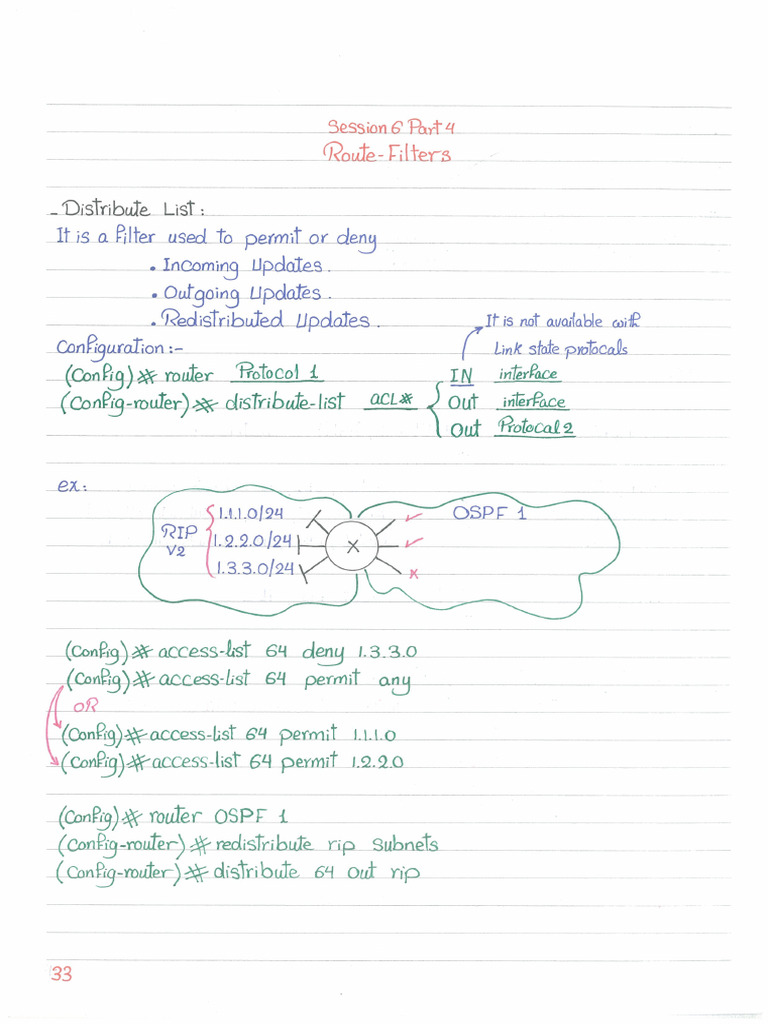 Session 6 Part 4
Route-Filters
- Distribute List :
It is a filter used to permit or deny
• Incoming Updates.
• Outgoing Updates.
• Redistributed Updates.
It is not available with
Link state protocals
Configuration:-
(Config)# router Protocol 1
IN interface
(Config-router)# distribute-list ACL# { Out interface
Out Protocal 2
ex:
RIP
V2
1.1.1.0/24
1.2.2.0/24
1.3.3.0/24
X
OSPF 1
✓
✓
x
(Config)# access-list 64 deny 1.3.3.0
(Config)# access-list 64 permit any
OR
(Config)# access-list 64 permit 1.1.1.0
(Config)# access-list 64 permit 1.2.2.0
(Config)# router OSPF 1
(Config-router)# redistribute rip Subnets
(Config-router)# distribute 64 out rip
33